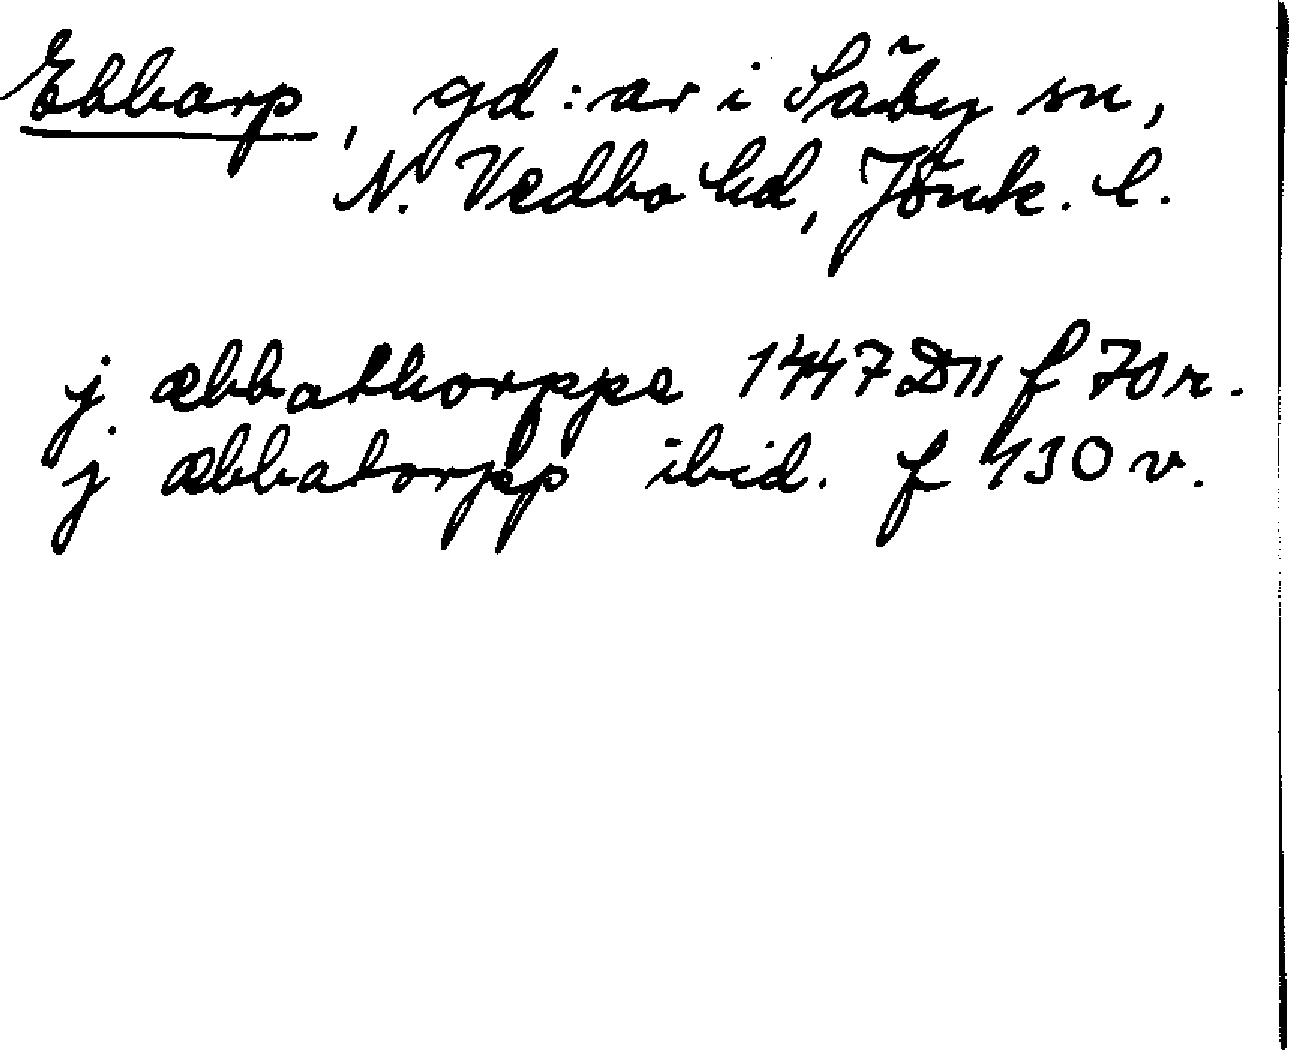 Ebbarp, gd:ar i Säby sn,
N. Vedbo hd, Jönk. l.
j æbbathorppe 1447 D11 f 70 r.
j æbbatorpp ibid. f 130 v.